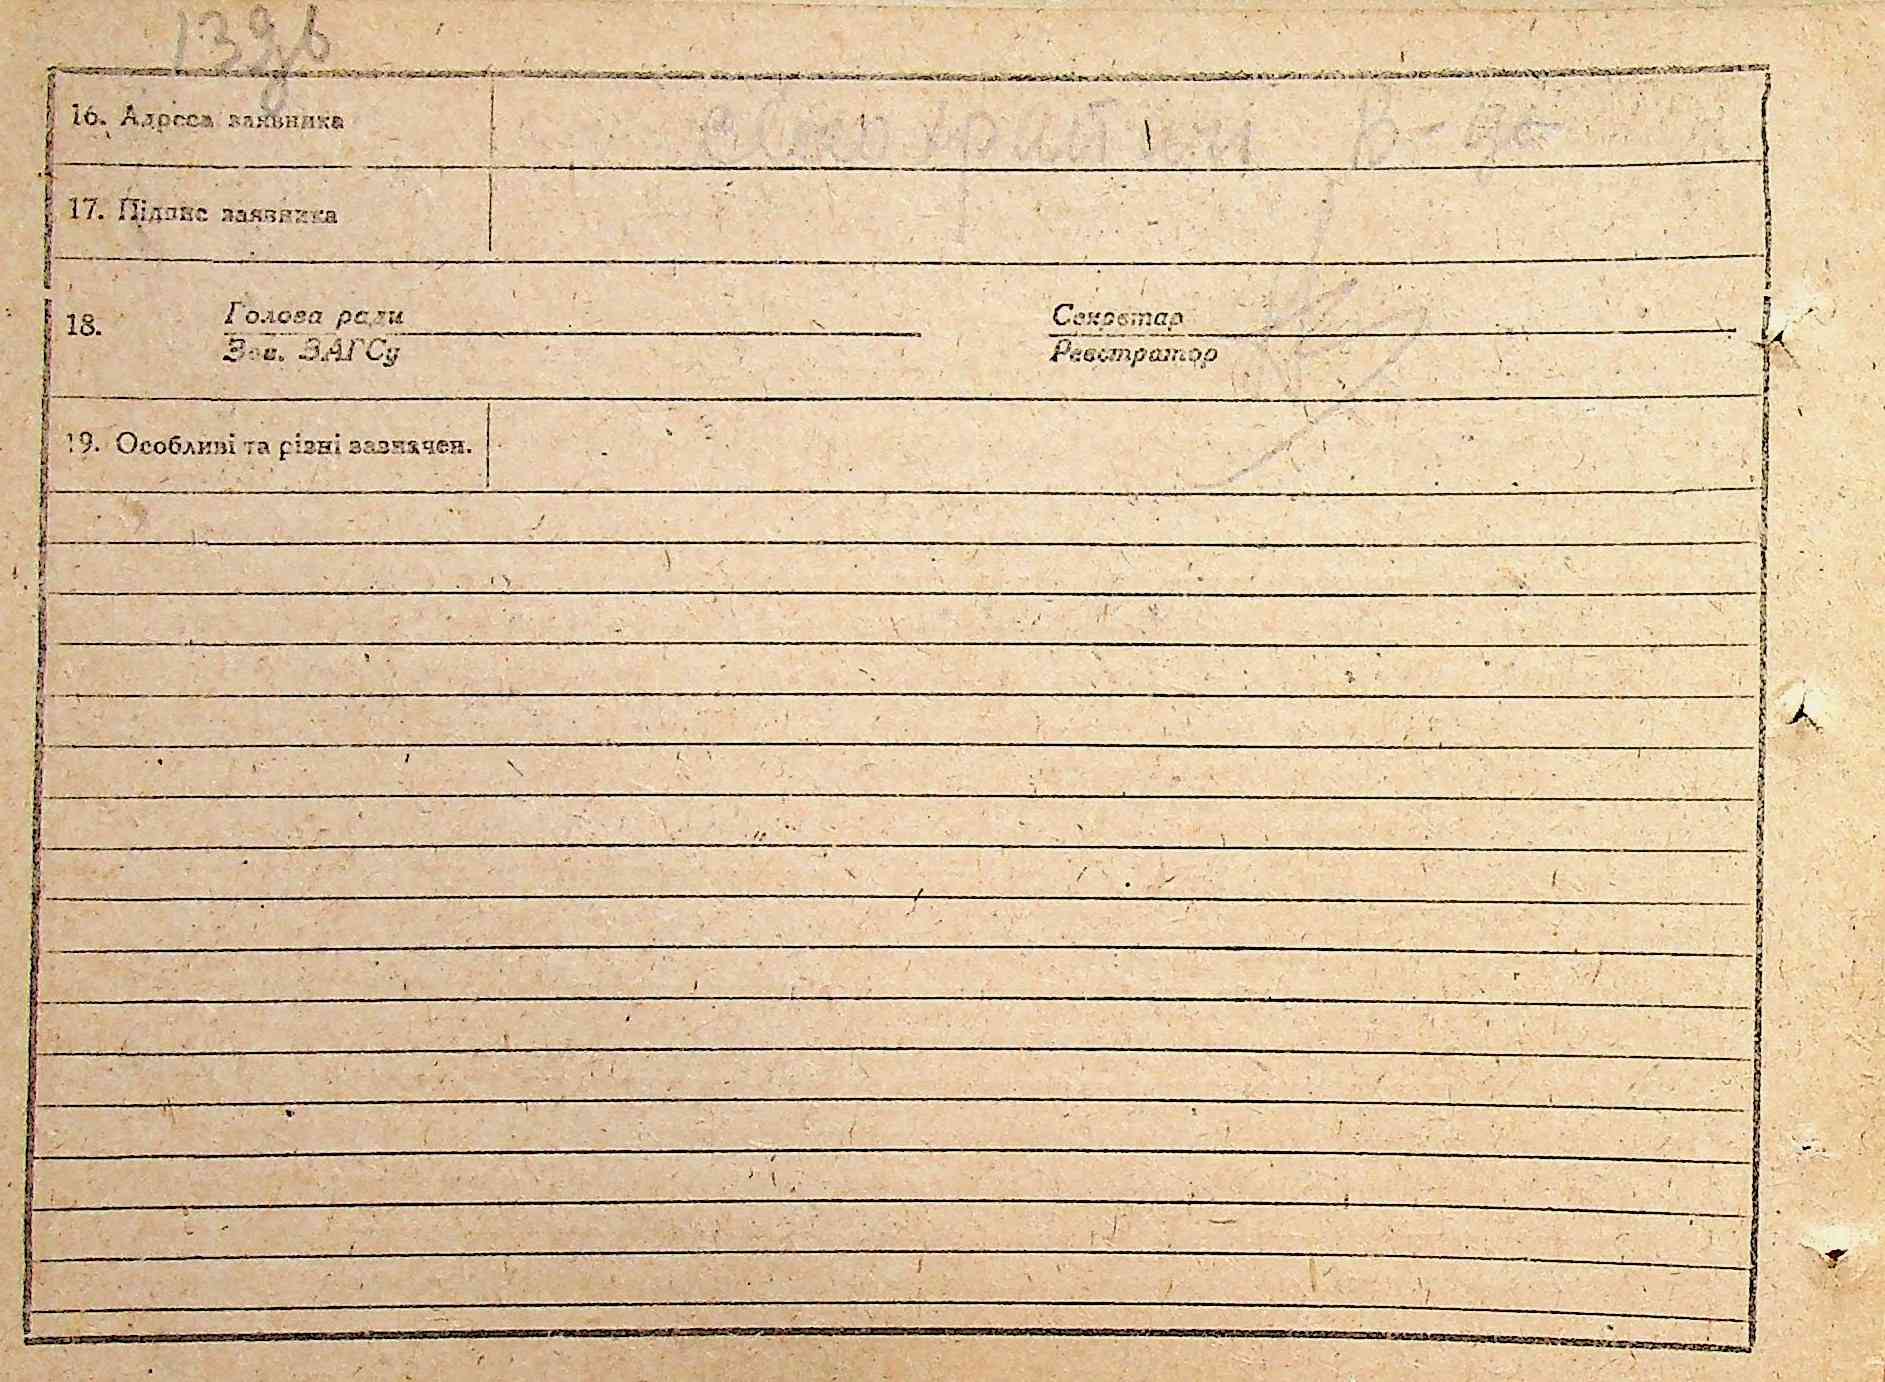 13зв
16. Адреса заявника
17. Підпис заявника
18. Голова ради Секретар
Зав. ЗАГСу Реєстратор
19. Особливі та різні зазначен.